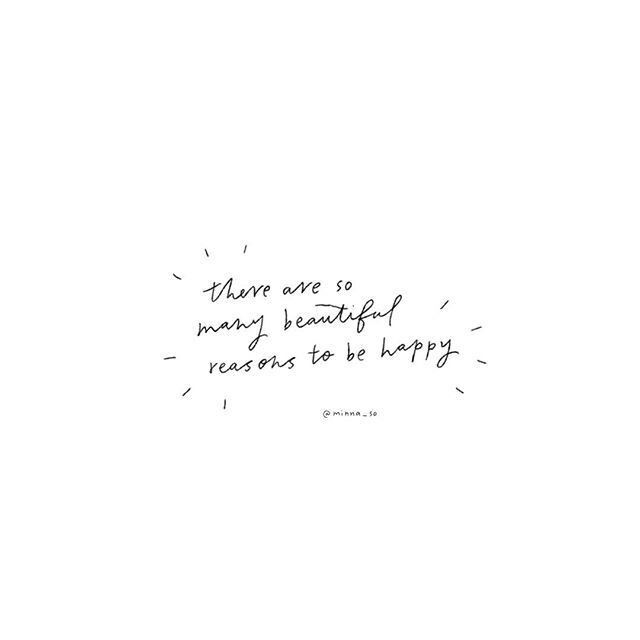 there are so
many beautiful
reasons to be happy
@minna_so